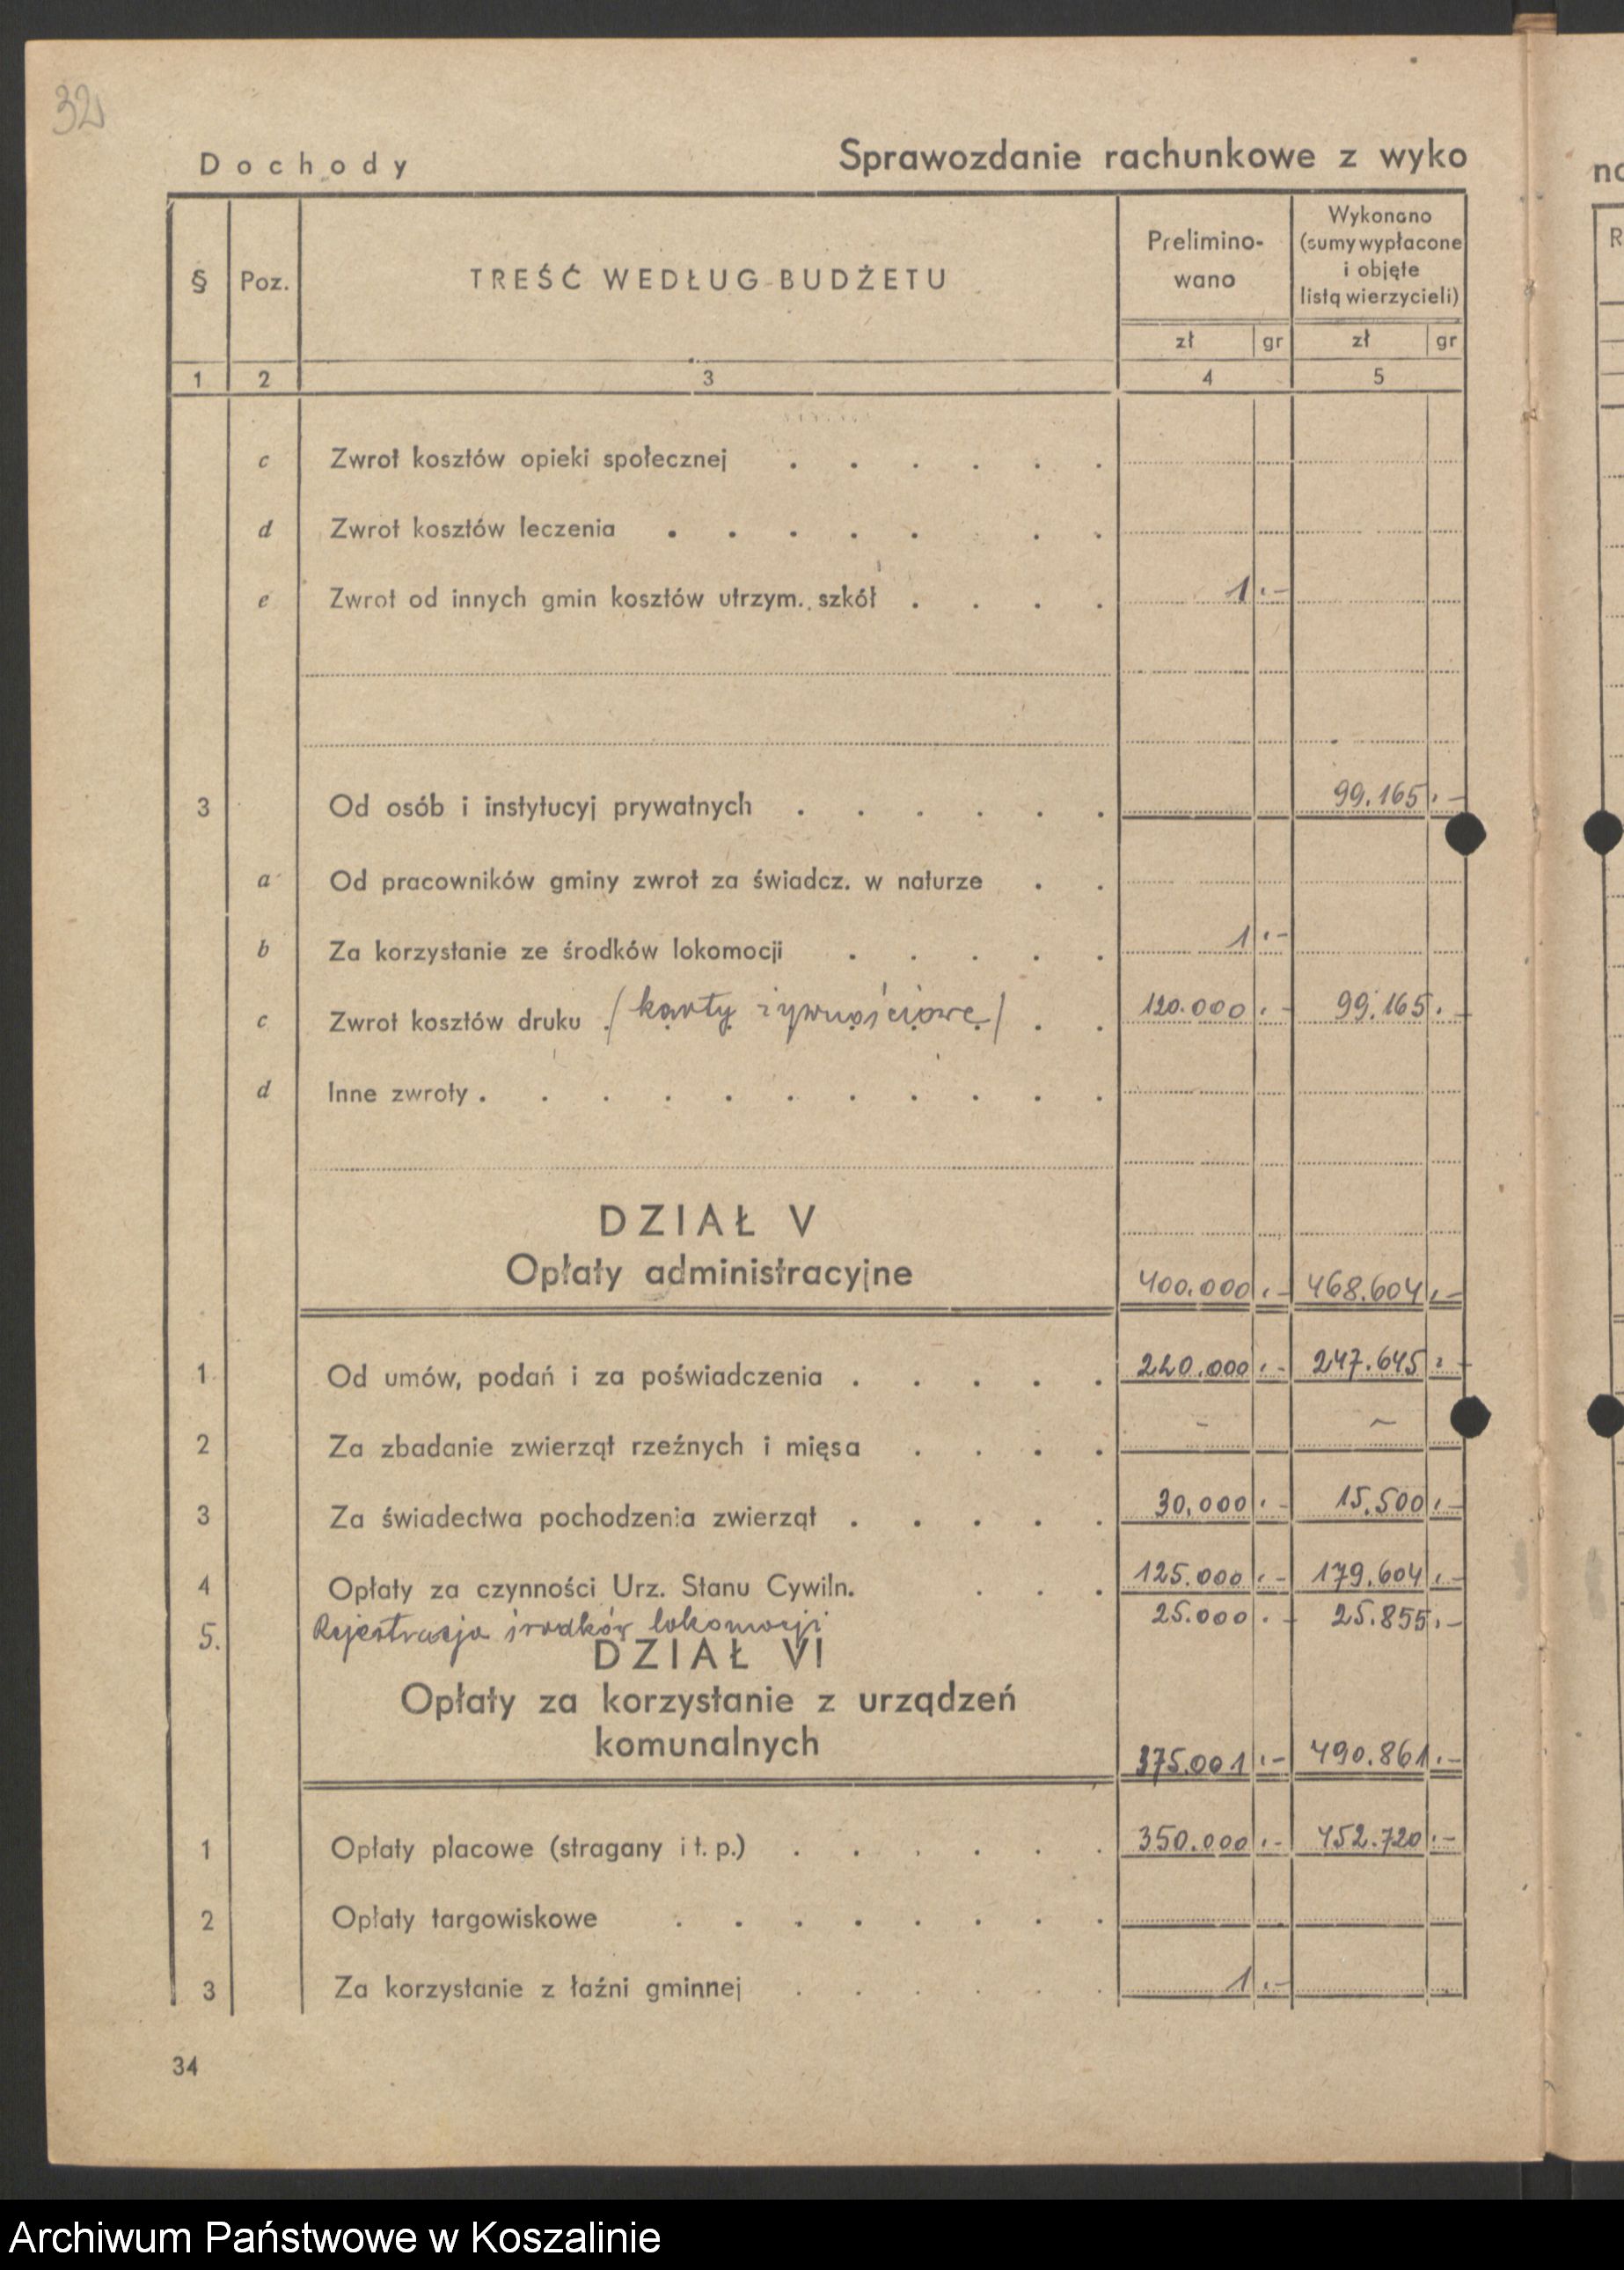 32
Dochody
Sprawozdanie rachunkowe z wyko
§ Poz. TREŚĆ WEDŁUG BUDŻETU Prelimino-wano Wykonano (sumy wypłacone i objęte listą wierzycieli)
zł gr zł gr
1 2 3 4 5
c Zwrot kosztów opieki społecznej . . . . . .
d Zwrot kosztów leczenia . . . . . . .
e Zwrot od innych gmin kosztów utrzym. szkół . . . . 1 .-
3 Od osób i instytucyj prywatnych . . . . . . 99.165 .-
a Od pracowników gminy zwrot za świadcz. w naturze . .
b Za korzystanie ze środków lokomocji . . . . . 1 .-
c Zwrot kosztów druku . /karty żywnościowe/ . . 120.000 .- 99.165 .-
d Inne zwroty . . . . . . . . . . .
DZIAŁ V
Opłaty administracyjne 400.000 .- 468.604 .-
1 Od umów, podań i za poświadczenia . . . . . 220.000 .- 247.645 .-
2 Za zbadanie zwierząt rzeźnych i mięsa . . . . - -
3 Za świadectwa pochodzenia zwierząt . . . . . 30.000 .- 15.500 .-
4 Opłaty za czynności Urz. Stanu Cywiln. . . . 125.000 .- 179.604 .-
5. Rejestracja środków lokomocji 25.000 .- 25.855 .-
DZIAŁ VI
Opłaty za korzystanie z urządzeń
komunalnych 375.001 .- 490.861 .-
1 Opłaty placowe (stragany i t. p.) . . . . . . 350.000 .- 452.720 .-
2 Opłaty targowiskowe . . . . . . . .
3 Za korzystanie z łaźni gminnej . . . . . . 1 .-
34
Archiwum Państwowe w Koszalinie